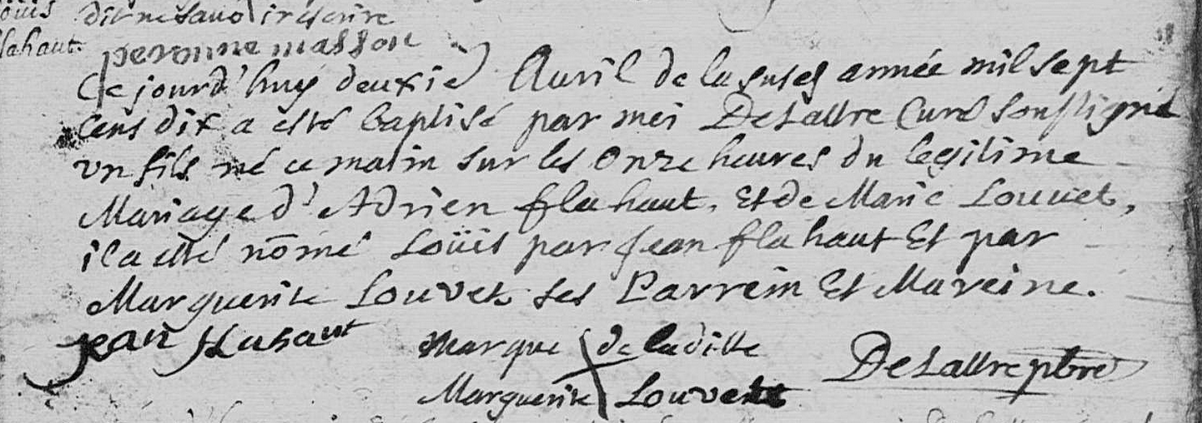 Louis
flahaut.
dit ne savoir escrire
peronne masson
Ce jourd'huy deuxie) Auril de la susd année mil sept
cens dix a esté baptisé par moi Delattre Curé soussigné
vn fils né ce matin sur les onze heures du legitime
Mariage d'Adrien flahaut, Et de Marie Louvet,
il a esté nōmé Loüis par Jean flahaut Et par
Marguerite Louvet ses Parrein Et Mareine.
jean flahaut
marque de laditte
Marguerite Louvet
Delattre pbre